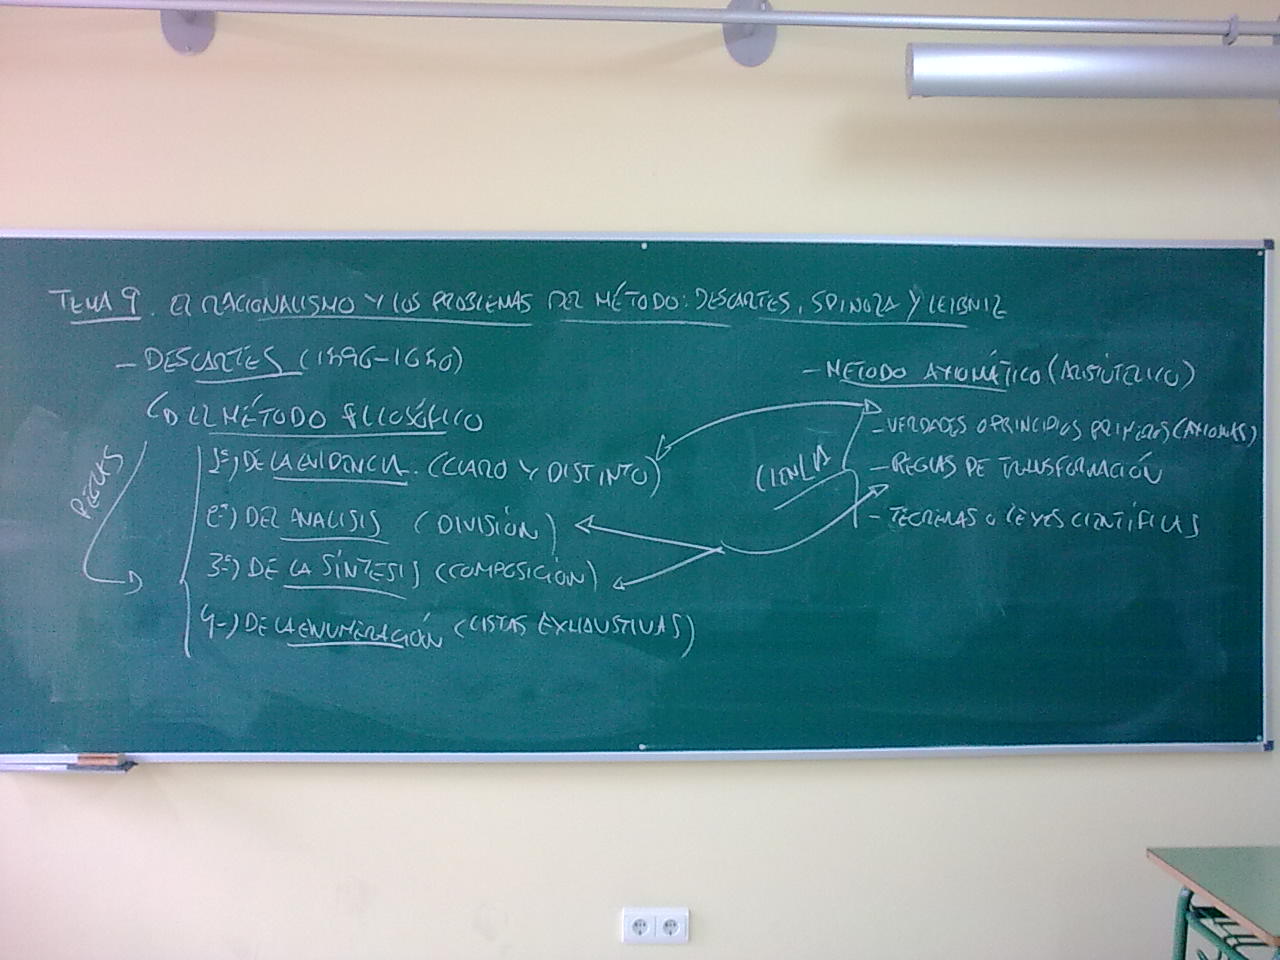 TEMA 9. EL RACIONALISMO Y LOS PROBLEMAS DEL MÉTODO: DESCARTES, SPINOZA Y LEIBNIZ
- DESCARTES (1596-1650)
EL MÉTODO FILOSÓFICO
REGLAS
1ª) DE LA EVIDENCIA. (CLARO Y DISTINTO)
2ª) DEL ANALISIS (DIVISIÓN)
3ª) DE LA SÍNTESIS (COMPOSICIÓN)
4-) DE LA ENUMERACIÓN (LISTAS EXHAUSTIVAS)
- METODO AXIOMÁTICO (ARISTOTÉLICO)
CIENCIA
- VERDADES O PRINCIPIOS PRIMEROS (AXIOMAS)
- REGLAS DE TRANSFORMACIÓN
- TEOREMAS O LEYES CIENTÍFICAS